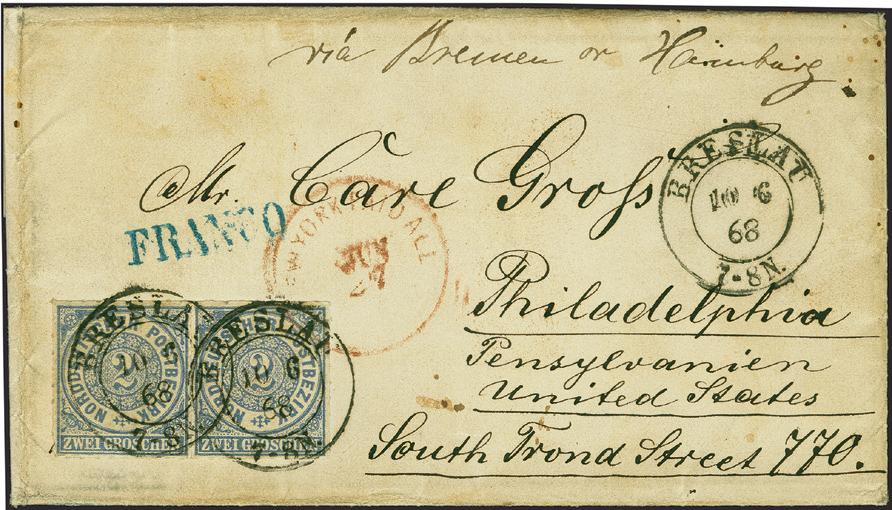 via Bremen or Hamburg
Mr. Care Gross
FRANCO
NEW YORK PAID ALL
JUN
BRESLAU
10 6
68
7-8 N.
Philadelphia
Pensylvanien
United States
South Frond Street 770.
NORDDEUTSCHER POSTBEZIRK
2
ZWEI GROSCHEN
BRESLAU
10 6
68
7-8 N.
NORDDEUTSCHER POSTBEZIRK
2
ZWEI GROSCHEN
BRESLAU
10 6
68
7-8 N.